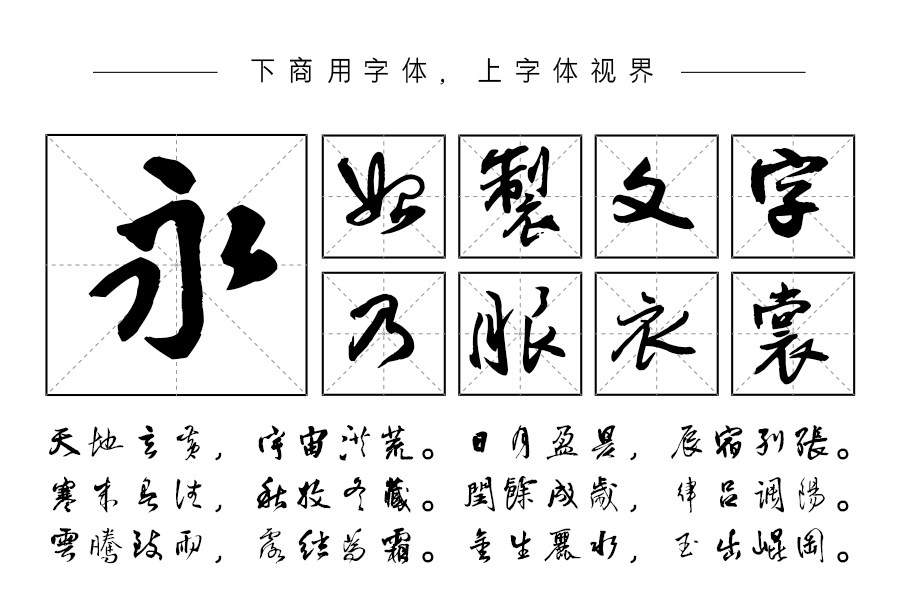 下商用字体，上字体视界
永
始製文字
乃服衣裳
天地玄黄，宇宙洪荒。日月盈昃，辰宿列張。
寒来暑往，秋收冬藏。閏餘成歲，律吕调陽。
雲騰致雨，露结为霜。金生麗水，玉出崐岡。